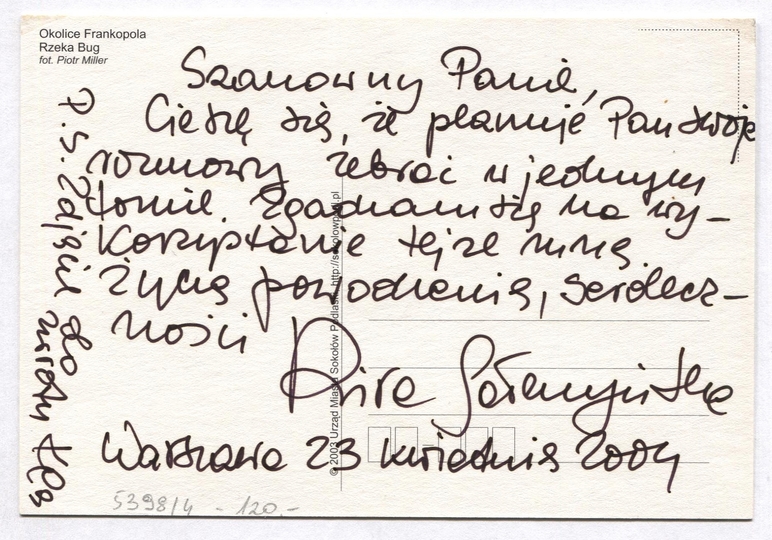 Okolice Frankopola
Rzeka Bug
fot. Piotr Miller
Szanowny Panie,
Cieszę się, że planuje Pan swoje
rozmowy zebrać w jednym
tomie. Zgadzam się na wy-
korzystanie tejże ze mną
Życzę powodzenia, serdecz-
ności
Warszawa 23 kwietnia 2004
P.S. Zdjęcie do
zwrotu
© 2003 Urząd Miasta Sokołów Podlaski, http://sokolowpodl.pl
5398/4 - 120.-